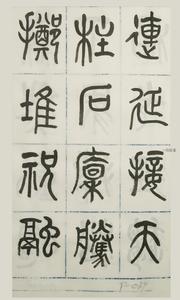 連延接天
柱石廩騰
擲堆祝融